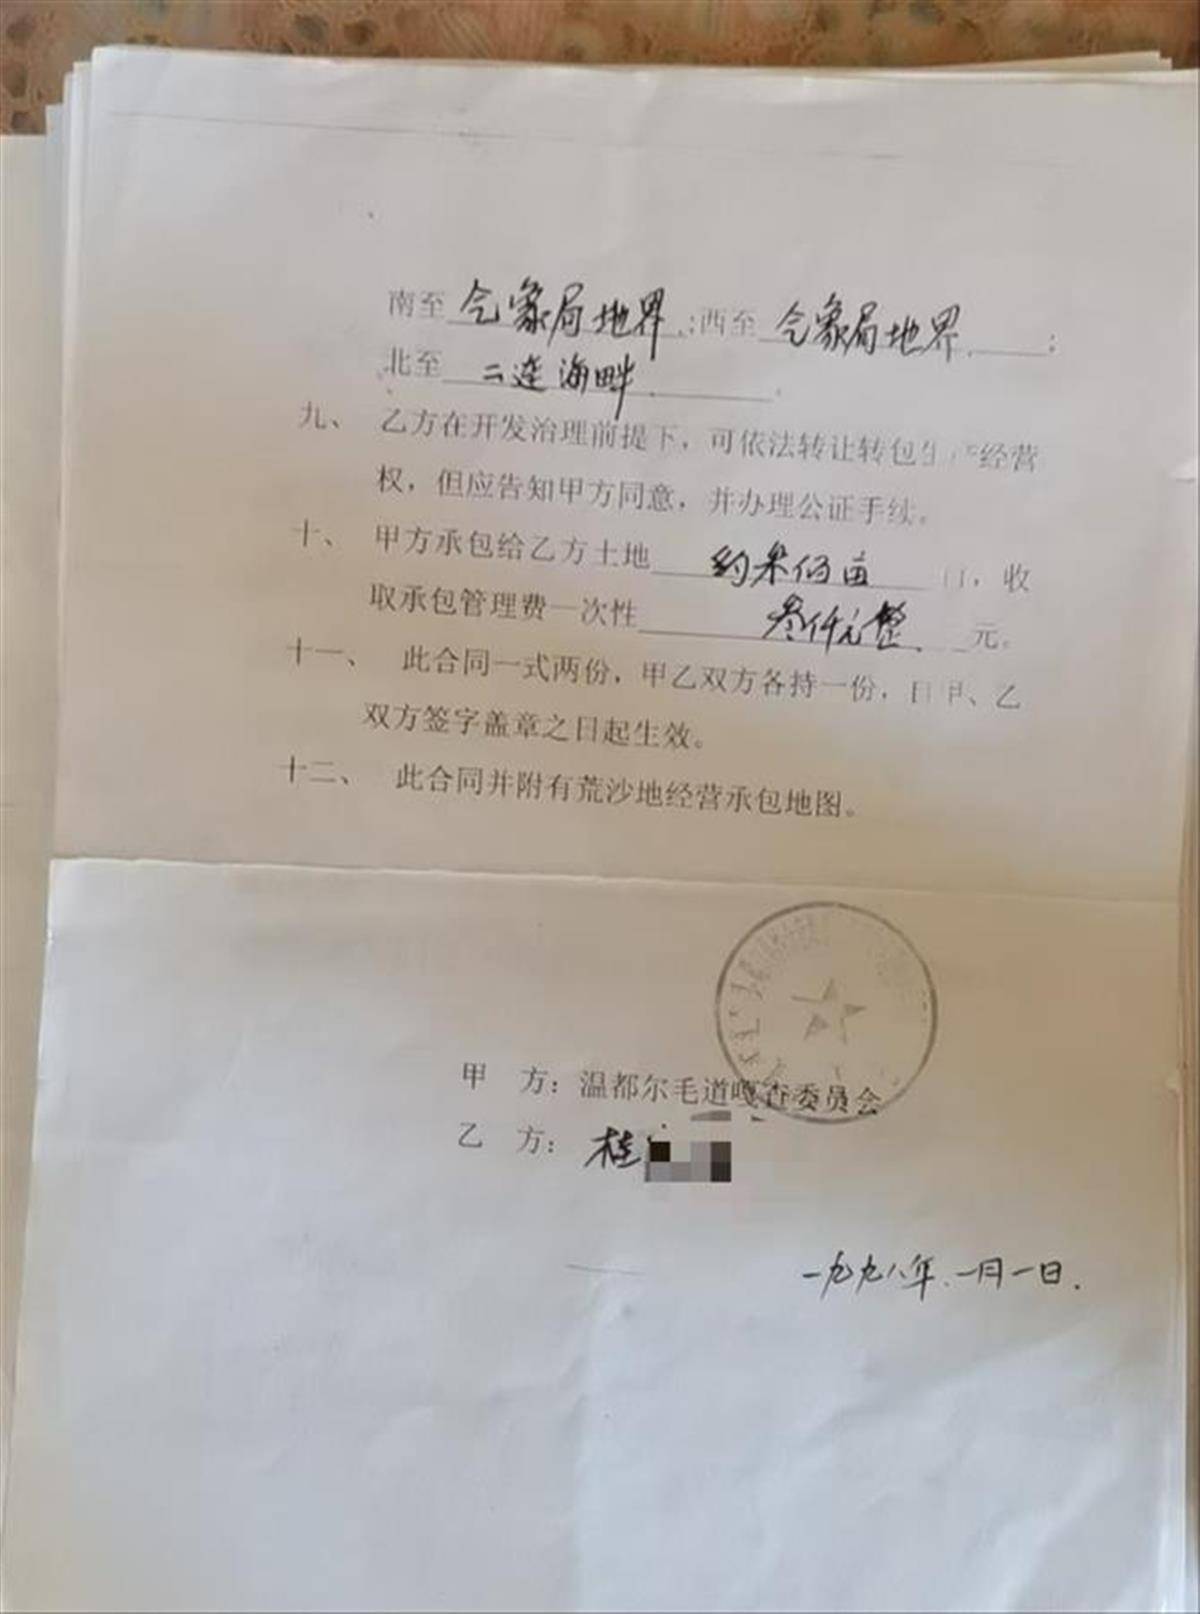 南至 气象局地界 ；西至 气象局地界 ；
北至 二连海畔
九、 乙方在开发治理前提下，可依法转让转包生产经营
权，但应告知甲方同意，并办理公证手续。
十、 甲方承包给乙方土地 约 佰亩 ，收
取承包管理费一次性 叁仟元整 元。
十一、 此合同一式两份，甲乙双方各持一份，自甲、乙
双方签字盖章之日起生效。
十二、 此合同并附有荒沙地经营承包地图。
甲 方：温都尔毛道嘎查委员会
乙 方：桂
一九九八年.一月一日.